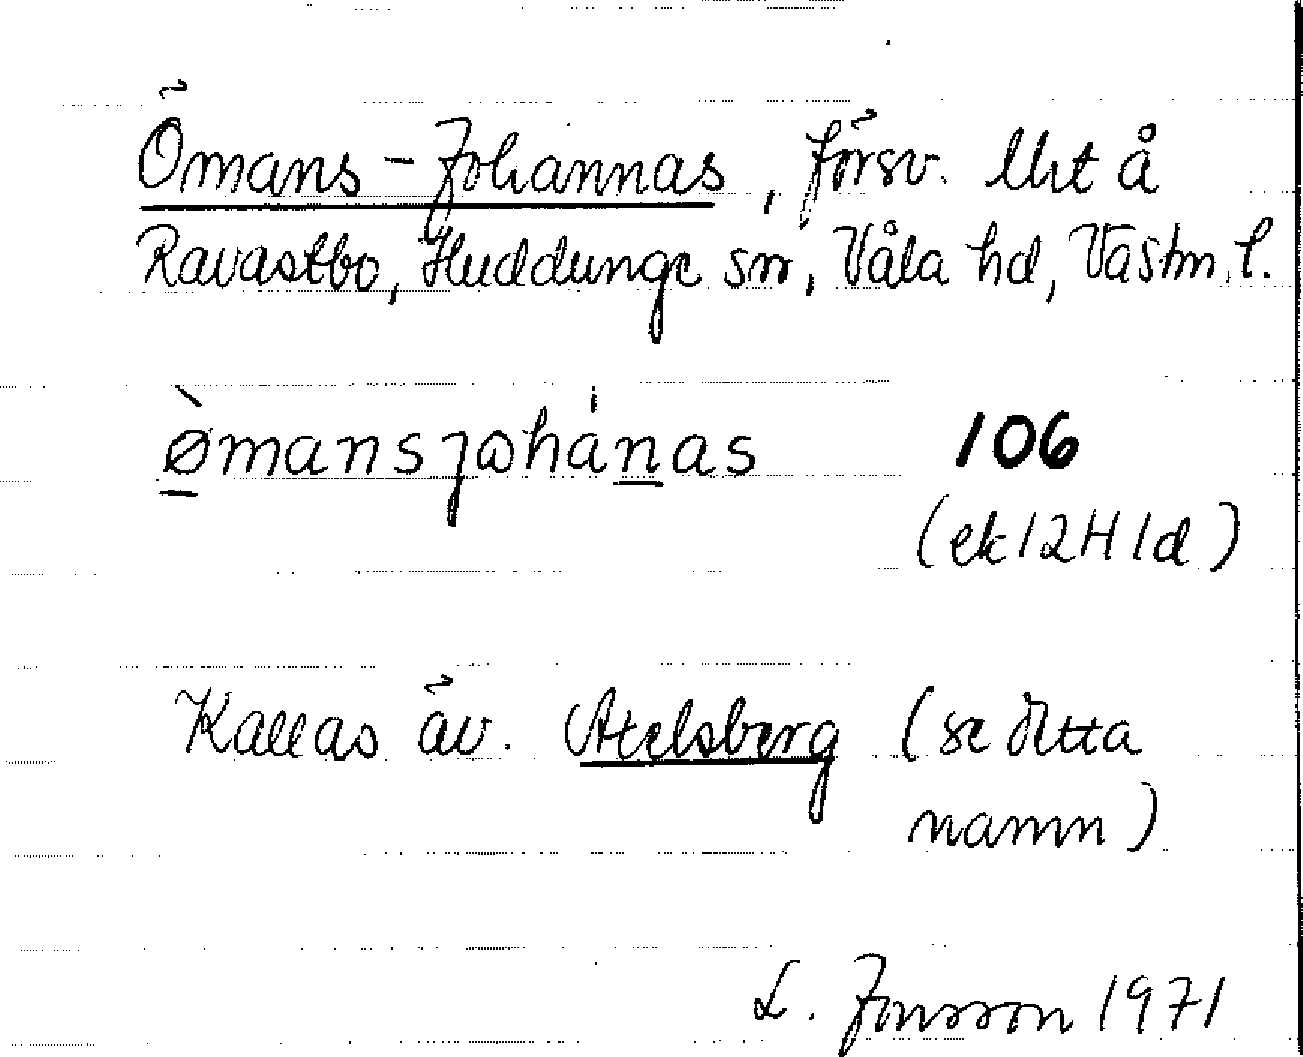 Ömans-Johannas, försv. lht å
Ravastbo, Huddunge sn, Våla hd, Västm. l.
ø̀mansjωhánas 106
(ek 12H 1d)
Kallas äv. Atelsberg (se detta
namn)
L. Jonsson 1971